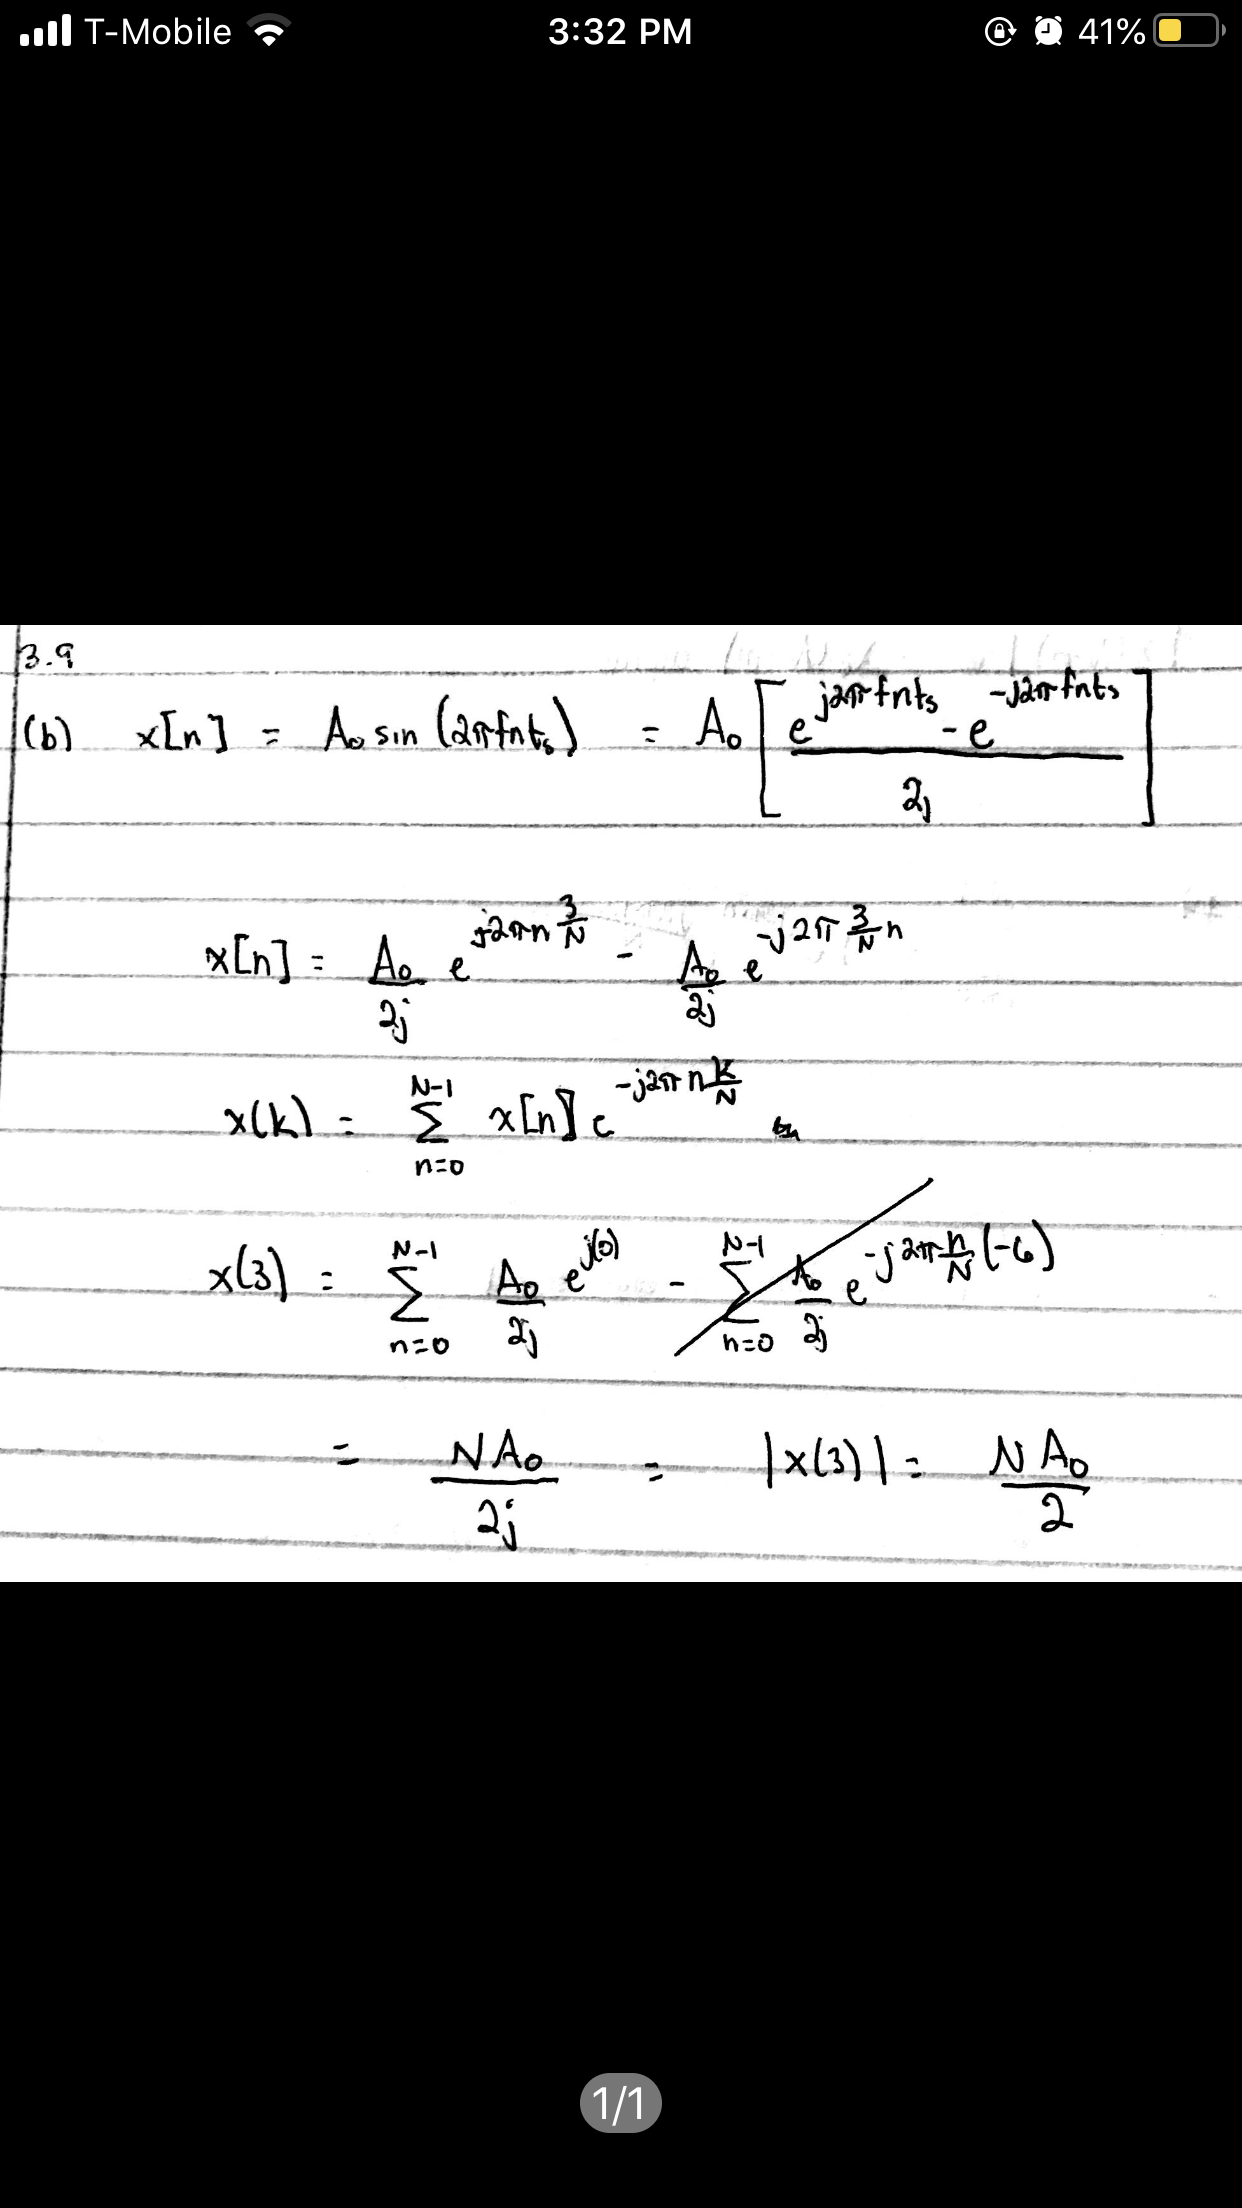 T-Mobile 3:32 PM 41%
3.9
(b) x[n] = A₀ sin (2πfntₛ) = A₀ [ (e^(j2πfntₛ) - e^(-j2πfntₛ)) / 2j ]
x[n] = A₀/2j e^(j2πn 3/N) - A₀/2j e^(-j2π 3/N n)
x(k) = Σ_(n=0)^(N-1) x[n] e^(-j2πn k/N)
x(3) = Σ_(n=0)^(N-1) A₀/2j e^(j(0)) - Σ_(n=0)^(N-1) A₀/2j e^(-j2π n/N (-6))
= NA₀/2j = |x(3)| = NA₀/2
1/1